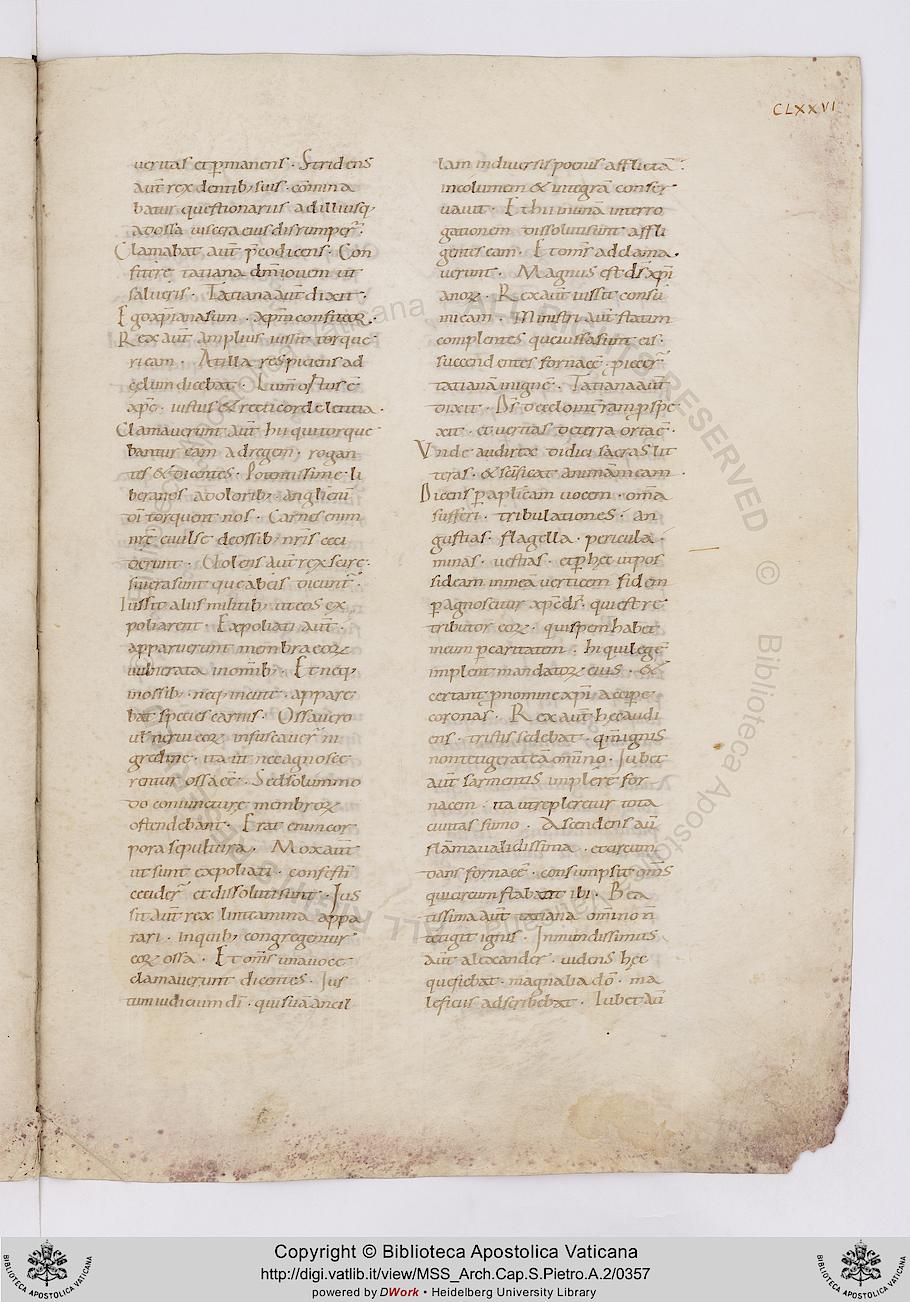 CLXXVI
ueritas et p̄manens · Stridens
aūt rex dentib; suis · cōmina
batur questionariis ad illiusq;
ad ossa uiscera eius disrumper̄ ·
Clamabat aūt p̄co dicens · Con
fitere tatiana dn̄m iouem ut
salueris · Tatiana aūt dixit ·
Ego xp̄iana sum · xp̄m confiteor ·
Rex aūt amplius iussit torque
ri eam · At illa respiciens ad
cęlum dicebat · Lum̄ ostuis ē
xp̄e · iustus & recti corde letitia ·
Clamauerunt aūt hii qui torque
bantur eam ad regem · rogan
tes & dicentes · Potentissime li
bera nos a dolorib; · angli enī
dī torquent nos · Carnes enim
nr̄ę euulsę de ossib; nr̄is ceci
derunt · Uolens aūt rex scire ·
si uera sunt que ab eis dicunt̄ ·
Iussit aliis militib; ut eos ex
poliarent · Expoliati aūt ·
apparuerunt membra eoꝝ
uulnerata in om̄ib; · Et neq;
in ossib; · neq; in cute · appare
bat species carnis · Ossa uero
ut nerui eoꝝ infuscauer̄ ni
gredine · ita ut nec agnosce
rentur ossa eē · Sed solummo
do coniuncturę membroꝝ
ostendebant · Erat enim cor
pora sepultura · Mox aūt
ut sunt expoliati · confestī
cecider̄ et dissoluti sunt · Ius
sit aūt rex linteamina appa
rari · in quib; congregentur
eoꝝ ossa · Et om̄s una uoce
clamauerunt dicentes · Ius
tum iudicium dī · qui suā ancil
lam in diuersis poenis afflictā ·
incolumem & integrā conser
uauit · Et hii in unā interro
gationem dissoluti sunt affli
gentes eam · Et om̄s adclama
uerunt · Magnus est dS xp̄i
anoꝝ · Rex aūt iussit consū
mi eam · Ministri aūt statim
complentes que iussa sunt eis ·
succendentes fornacē · piecer̄
tatianā in igne · Tatiana aūt
dixit · Ds̄ de celo in trām p̄spe
xit · et ueritas de terra orta ē ·
Unde audirtæ didici sacras lit
teras · & sc̄ificat animam eam ·
Dicens p̄ aplicam uocem · om̄a
sufferi · tribulationes · an
gustias · flagella · pericula ·
minas · uestias · et p̄ hęc ut pos
sideam in mea uerticem fidem
p̄ agnoscitur xp̄e dS · qui est re
tributor eoꝝ · qui spem habet
in eum p̄ caritatem · hi qui legē
implent mandatoꝝ eius · &
certant p̄ nomine xp̄i accipe
coronas · Rex aūt hęc audi
ens · tristis sedebat · qm̄ ignis
non tetigerat eā om̄ino · Iubet
aūt sarmentis implere for
nacem · ita ut repleretur tota
ciuitas fumo · Ascendens aū
flāma ualidissima · et circum
dans fornacē · consumpsit om̄s
qui circum stabant ibi · Bea
tissima aūt tatiana omino n
tetigit ignis · Inmundissimus
aūt alexander · uidens hęc
que fiebat · magnalia dō · ma
leficiis adscribebat · Iubet aū
Copyright © Biblioteca Apostolica Vaticana
http://digi.vatlib.it/view/MSS_Arch.Cap.S.Pietro.A.2/0357
powered by DWork • Heidelberg University Library